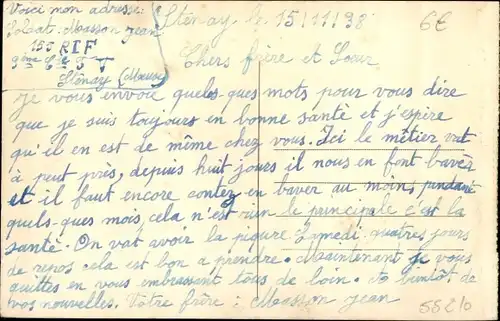 Voici mon adresse:
Soldat. Masson Jean
155 RIF
9ème Cie
Stenay (Meuse)
Stenay le 15/11/38
6€
Chers frère et Sœur
Je vous envoie quels-ques mots pour vous dire
que je suis toujours en bonne santé et j'espire
qu'il en est de même chez vous. Ici le métier vat
à peut près, depuis huit jours il nous en font baver
et il faut encore contez en baver au moins pendant
quels-ques mois, cela n'est rien le principale c'est la
santé. On vat avoir la piqure Samedi, quatres jours
de repos cela est bon a prendre. Maintenant je vous
quittes en vous embrassant tous de loin. A bientôt de
vos nouvelles. Votre frère: Masson Jean